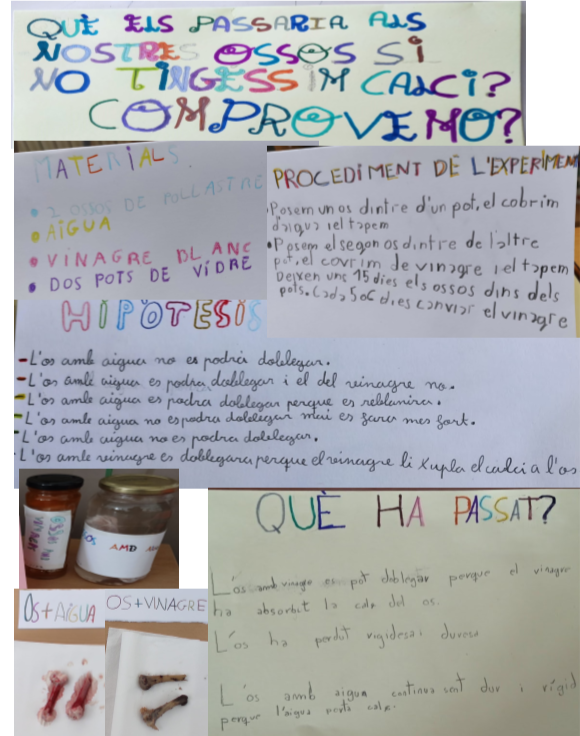 QUÈ ELS PASSARIA ALS
NOSTRES OSSOS SI
NO TINGESSIM CALCI?
COMPROVEMO?
MATERIALS.
• 2 OSSOS DE POLLASTRE
• AIGUA
• VINAGRE BLANC
• DOS POTS DE VIDRE
PROCEDIMENT DE L'EXPERIMENT
• Posem un os dintre d'un pot, el cobrim
d'aigua i el tapem
• Posem el segon os dintre de l'altre
pot, el covrim de vinagre i el tapem
Deixen uns 15 dies els ossos dins dels
pots. Cada 5 o 6 dies canviar el vinagre
HIPÒTESIS
- L'os amb aigua no es podrà doblegar.
- L'os amb aigua es podra doblegar i el del vinagre no.
- L'os amb aigua es podra doblegar perque es reblanira.
- L'os amb aigua no es podra doblegar mai es fara mes fort.
- L'os amb aigua no es podra doblegar.
- L'os amb vinagre es doblegara perque el vinagre li xupla el calci a l'os
OS AMB
OS+AIGUA
OS+VINAGRE
QUÈ HA PASSAT?
L'os amb vinagre es pot doblegar perque el vinagre
ha absorbit la calç del os.
L'os ha perdut rigidesa i duresa
L'os amb aigua continua sent dur i rígid
perque l'aigua porta calç.